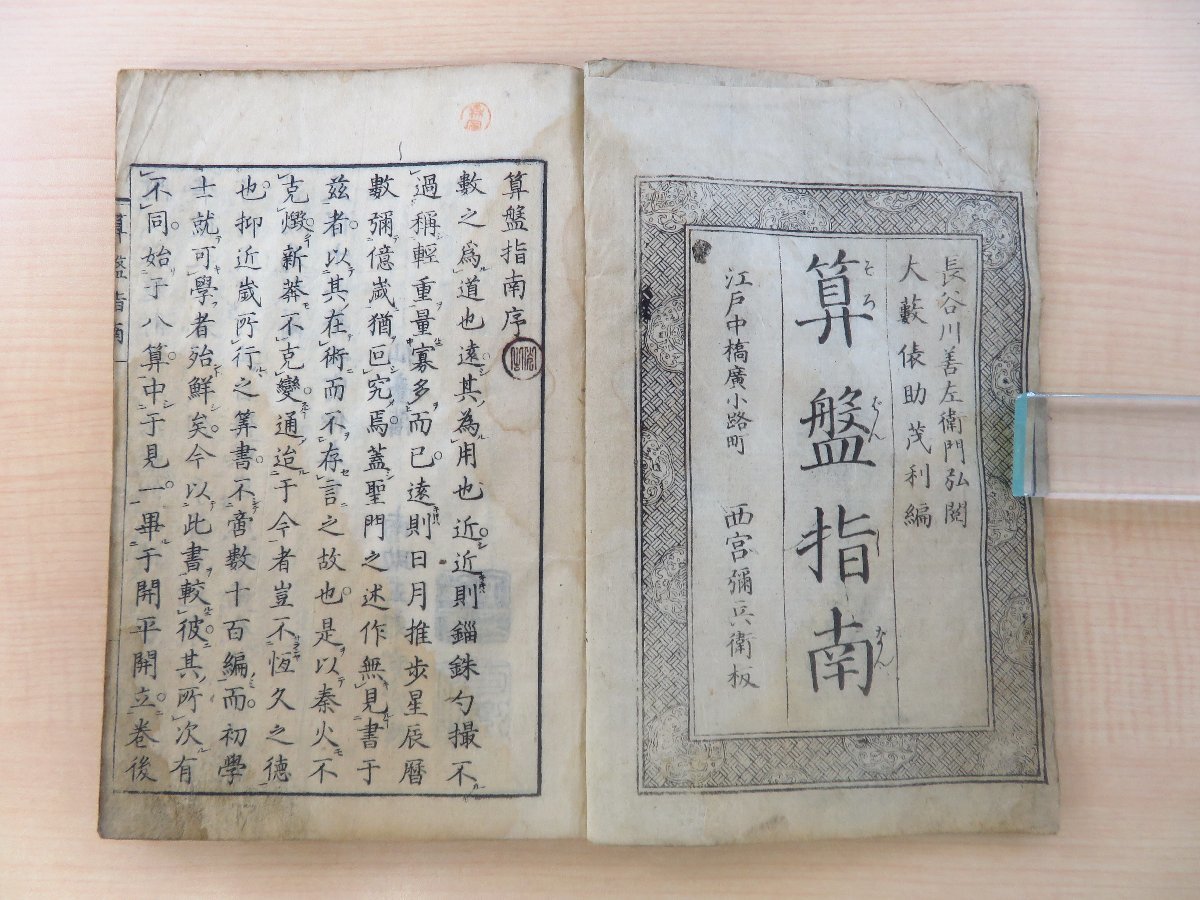 長谷川善左衛門弘閲
大藪俵助茂利編
算盤指南
そろばんしなん
江戸中橋廣小路町 西宮彌兵衛板
算盤指南序
數之爲道也遠其為用也近近則錙銖勺撮不
過稱輕重量寡多而已遠則日月推步星辰曆
數彌億歲猶回究焉蓋聖門之述作無見書于
兹者以其在術而不存言之故也是以秦火不
克燬新莽不克變通迨于今者豈不恆久之德
也抑近歲所行之筭書不啻數十百編而初學
士就可學者殆鮮矣今以此書較彼其所次有
不同始于八算中于見一畢于開平開立卷後
算盤指南